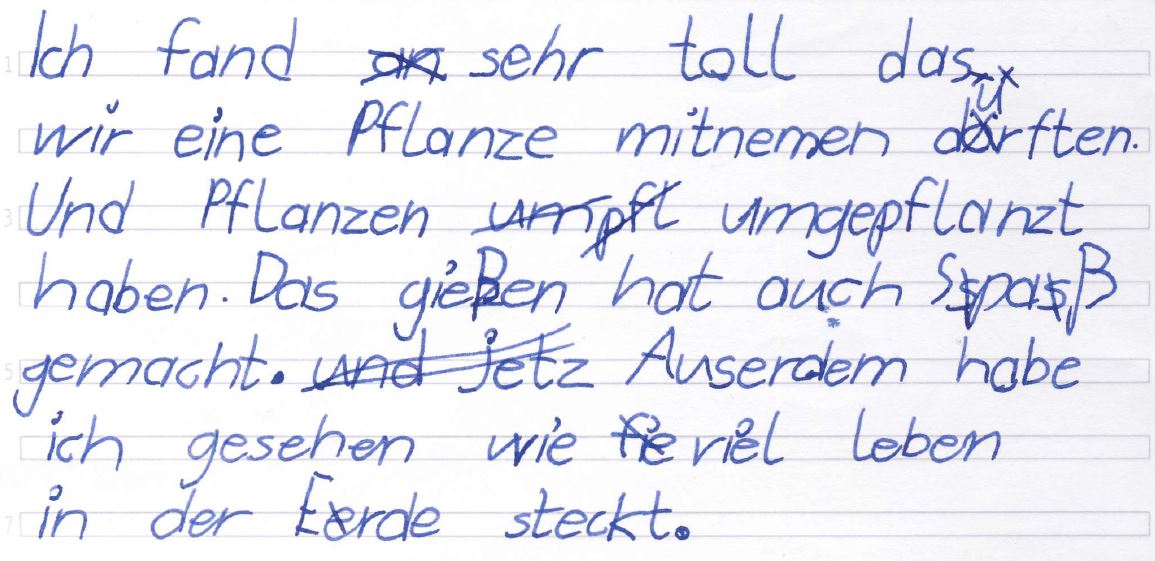 Ich fand sehr toll das
wir eine Pflanze mitnemen dürften.
Und Pflanzen umgepflanzt
haben. Das gießen hat auch Spaß
gemacht. Auserdem habe
ich gesehen wie viel leben
in der Erde steckt.